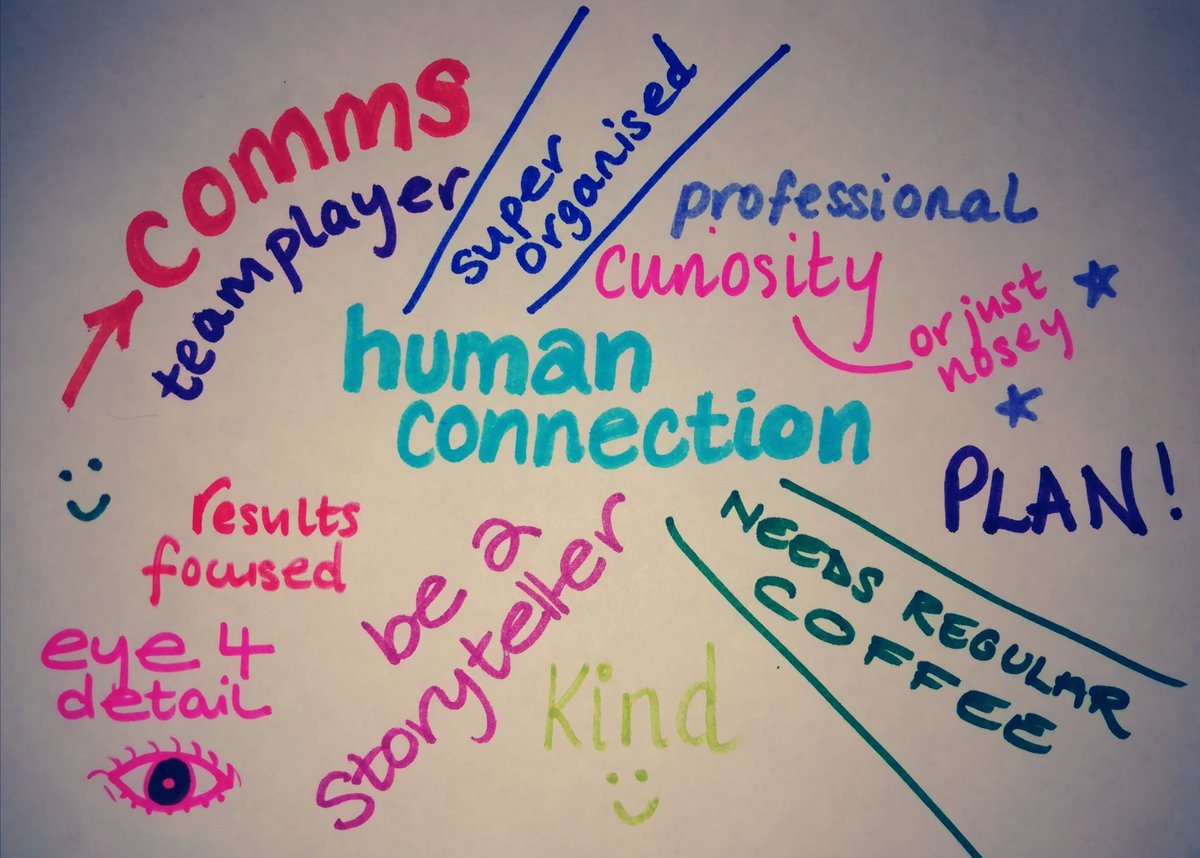 comms
teamplayer
super
organised
professional
curiosity
or just
nosey
human
connection
PLAN!
results
focused
be a
storyteller
NEEDS REGULAR
COFFEE
eye 4
detail
Kind